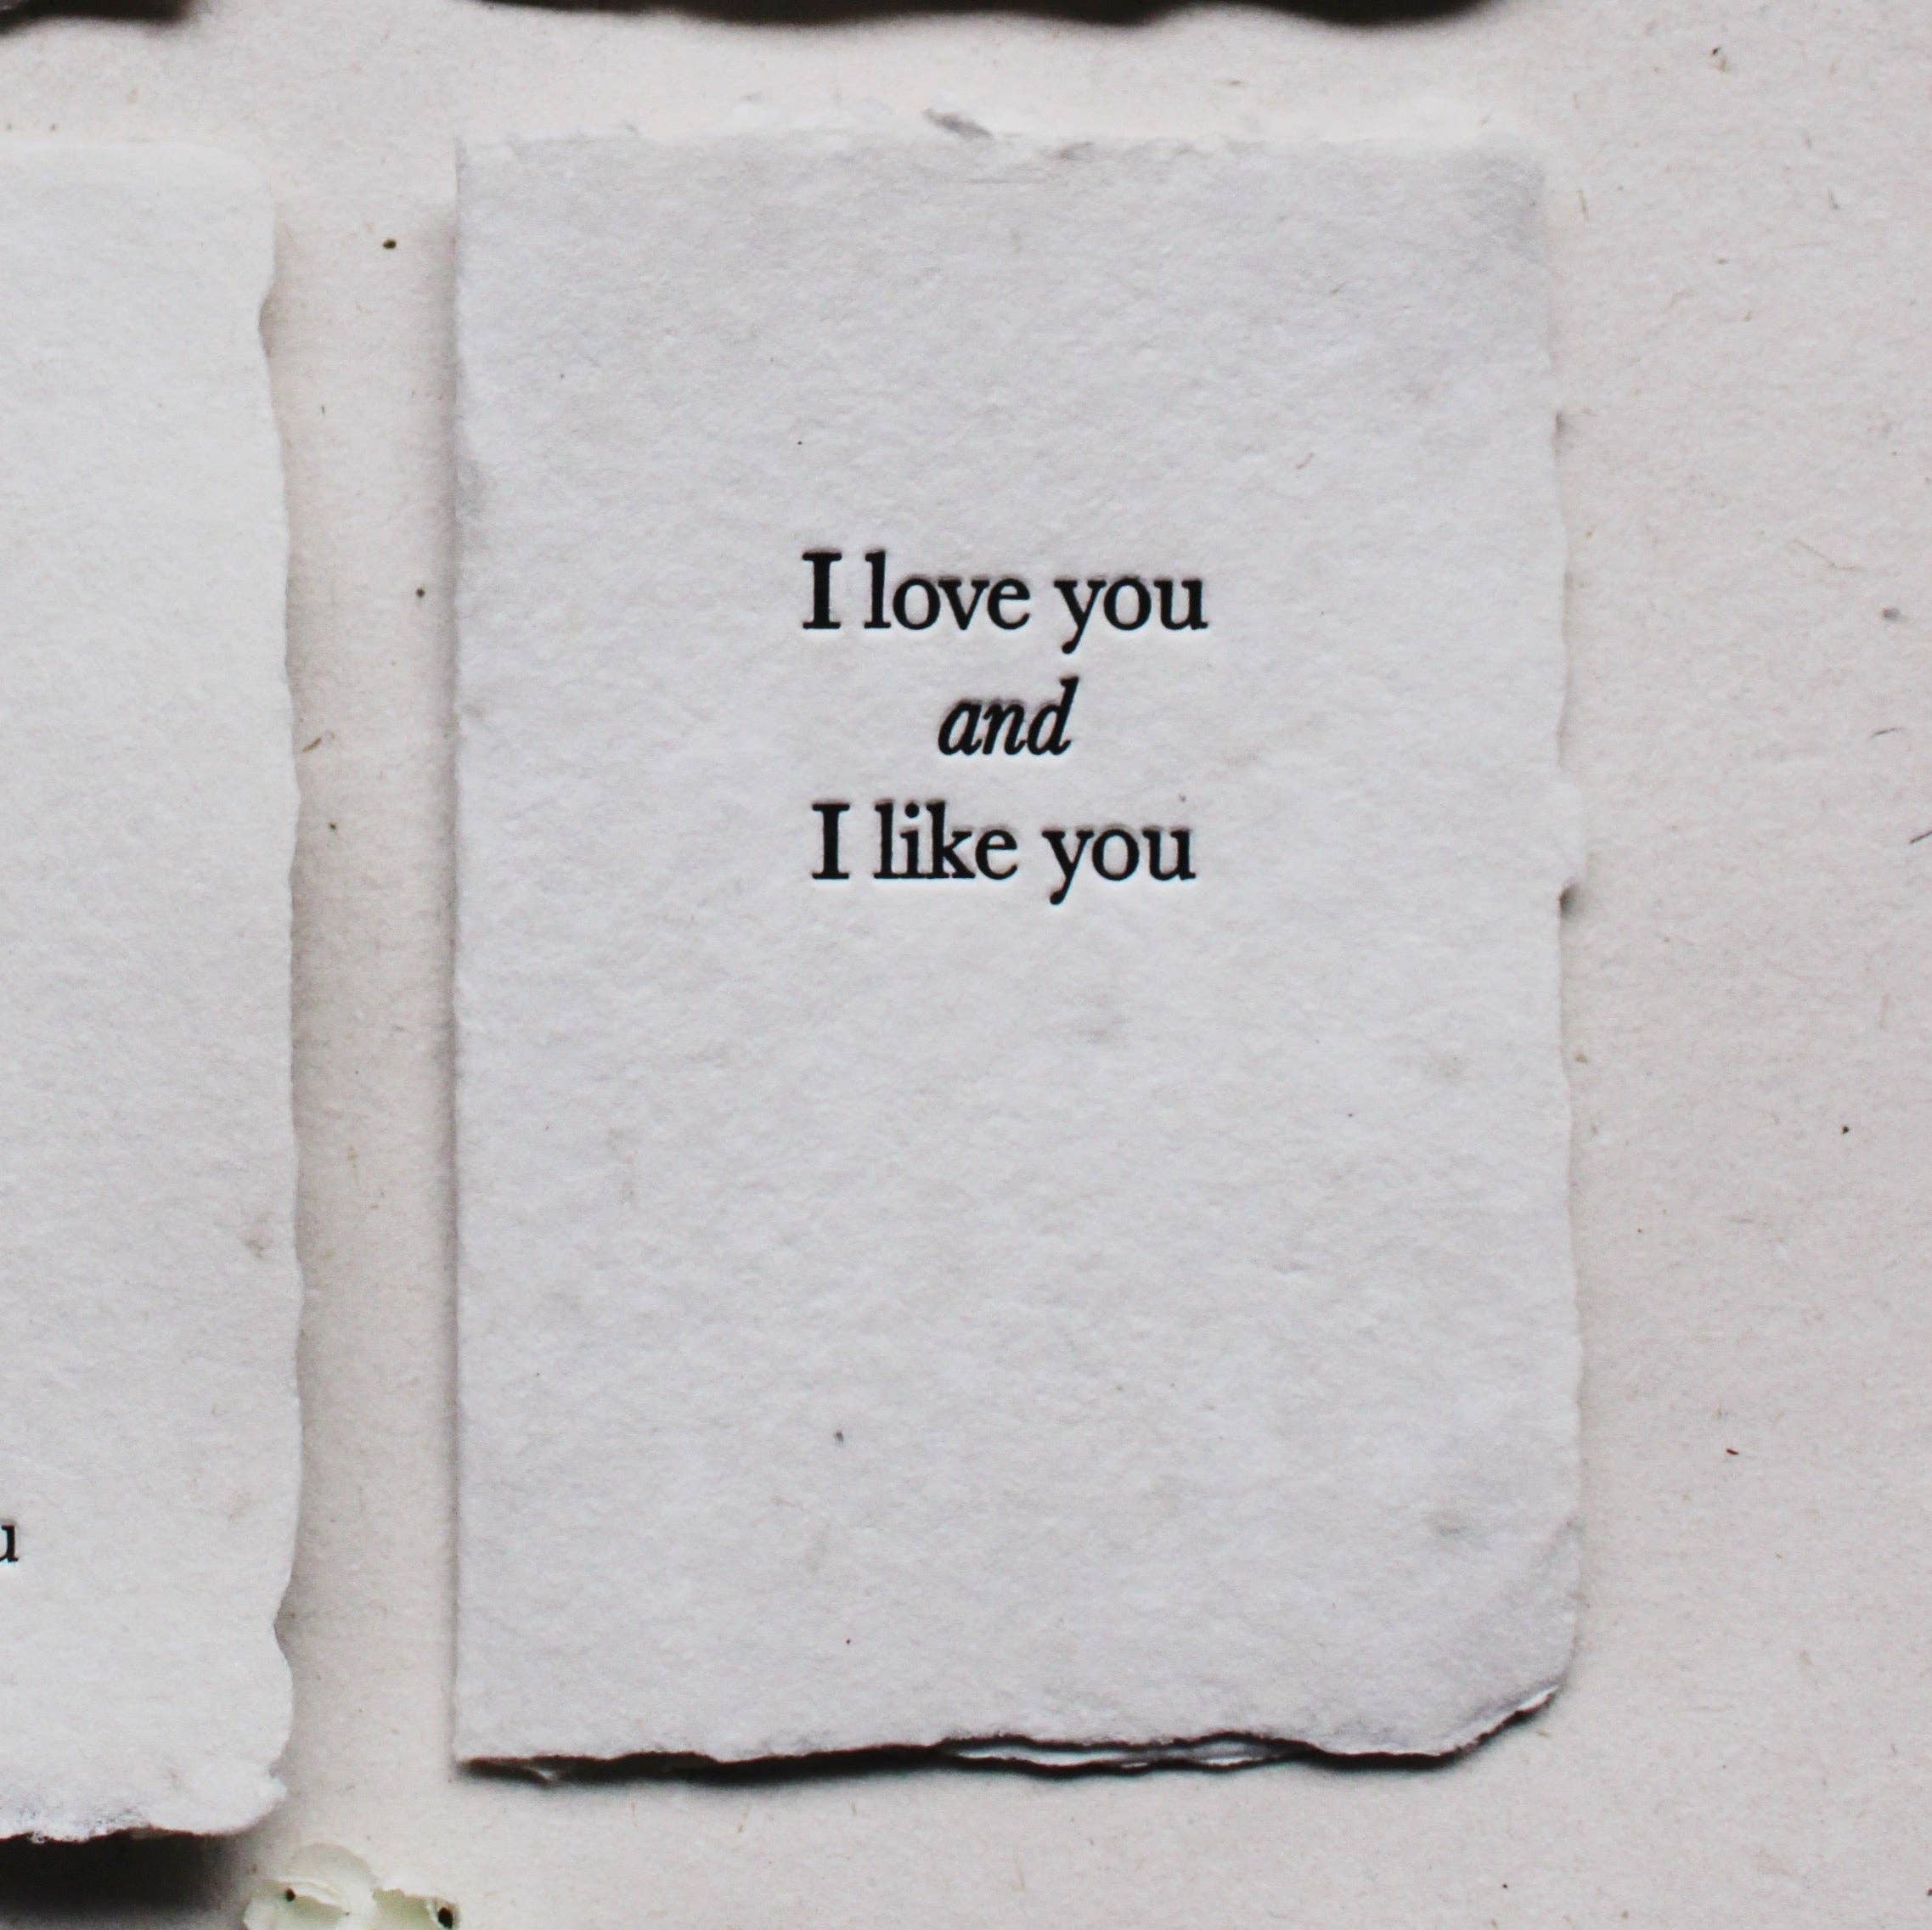 I love you
and
I like you